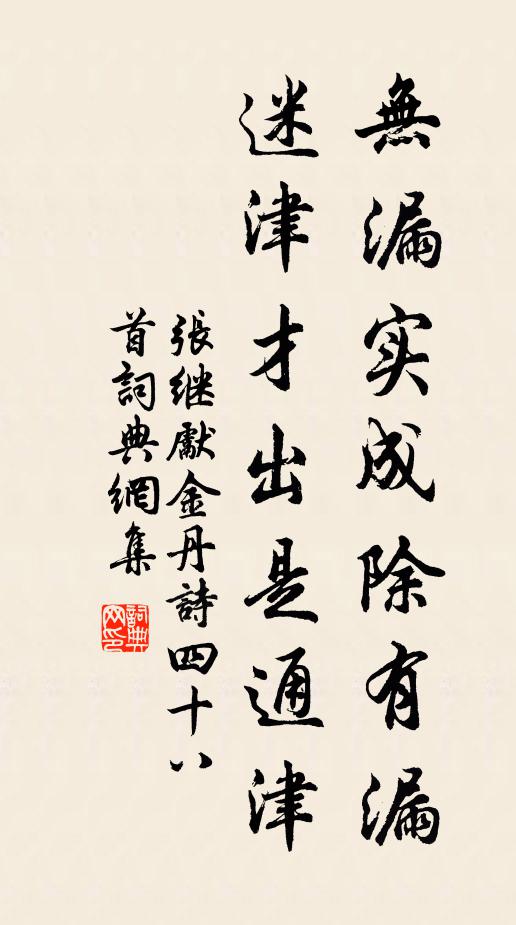 無漏实成除有漏
迷津才出是通津
張继獻金丹詩四十八
首詞典網集
詞典
网印